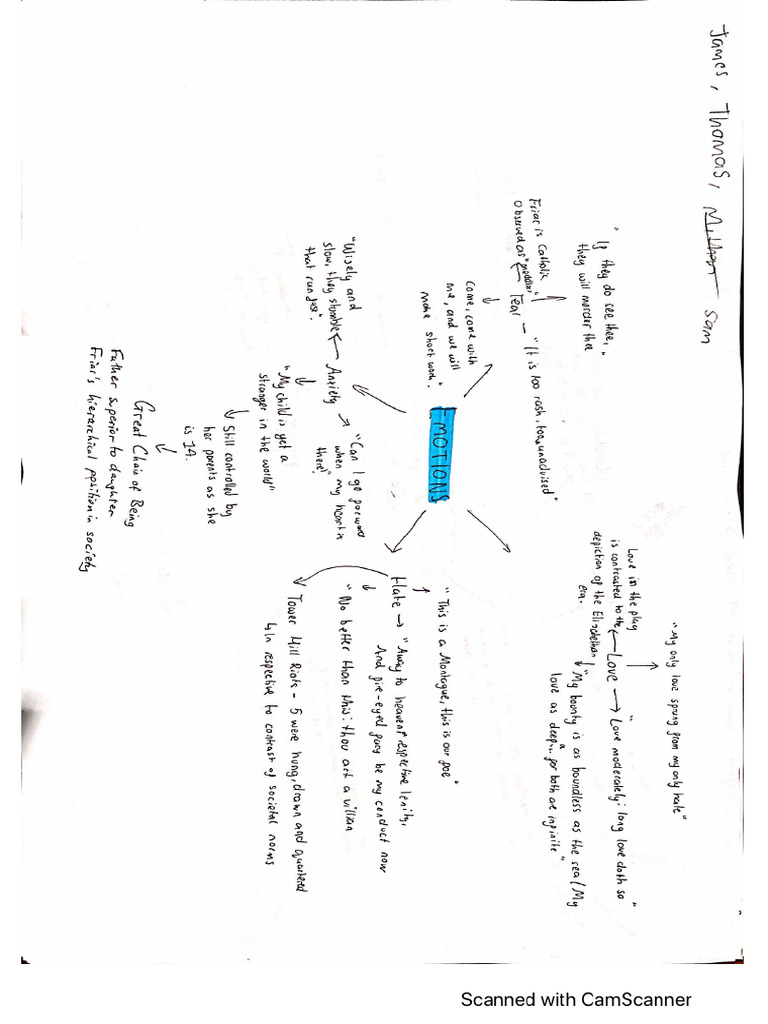 James, Thomas, Sam
"If they do see thee,
they will murder thee"
Friar is Catholic
Observed as "meddler"
Fear – "It is too rash, too unadvised"
Come, come with
me, and we will
make short work."
EMOTIONS
"Wisely and
slow, they stumble
that run fast".
Anxiety
"Can I go forward
when my heart is
there?"
"My child is yet a
stranger in the world"
Still controlled by
her parents as she
is 14.
Great Chain of Being
Father superior to daughter
Friar's hierarchical position in society
"My only love sprung from my only hate"
Love
"Love moderately: long love doth so"
Love in the play
is contrasted to the
depiction of the Elizabethan
era.
"My bounty is as boundless as the sea / My
love as deep... for both are infinite"
"This is a Montague, this is our foe"
Hate
"Away to heaven respective lenity,
And fire-eyed fury be my conduct now
"No better than this: thou art a villian
Tower Hill Riots - 5 were hung, drawn and quartered
In respective to contrast of societal norms
Scanned with CamScanner